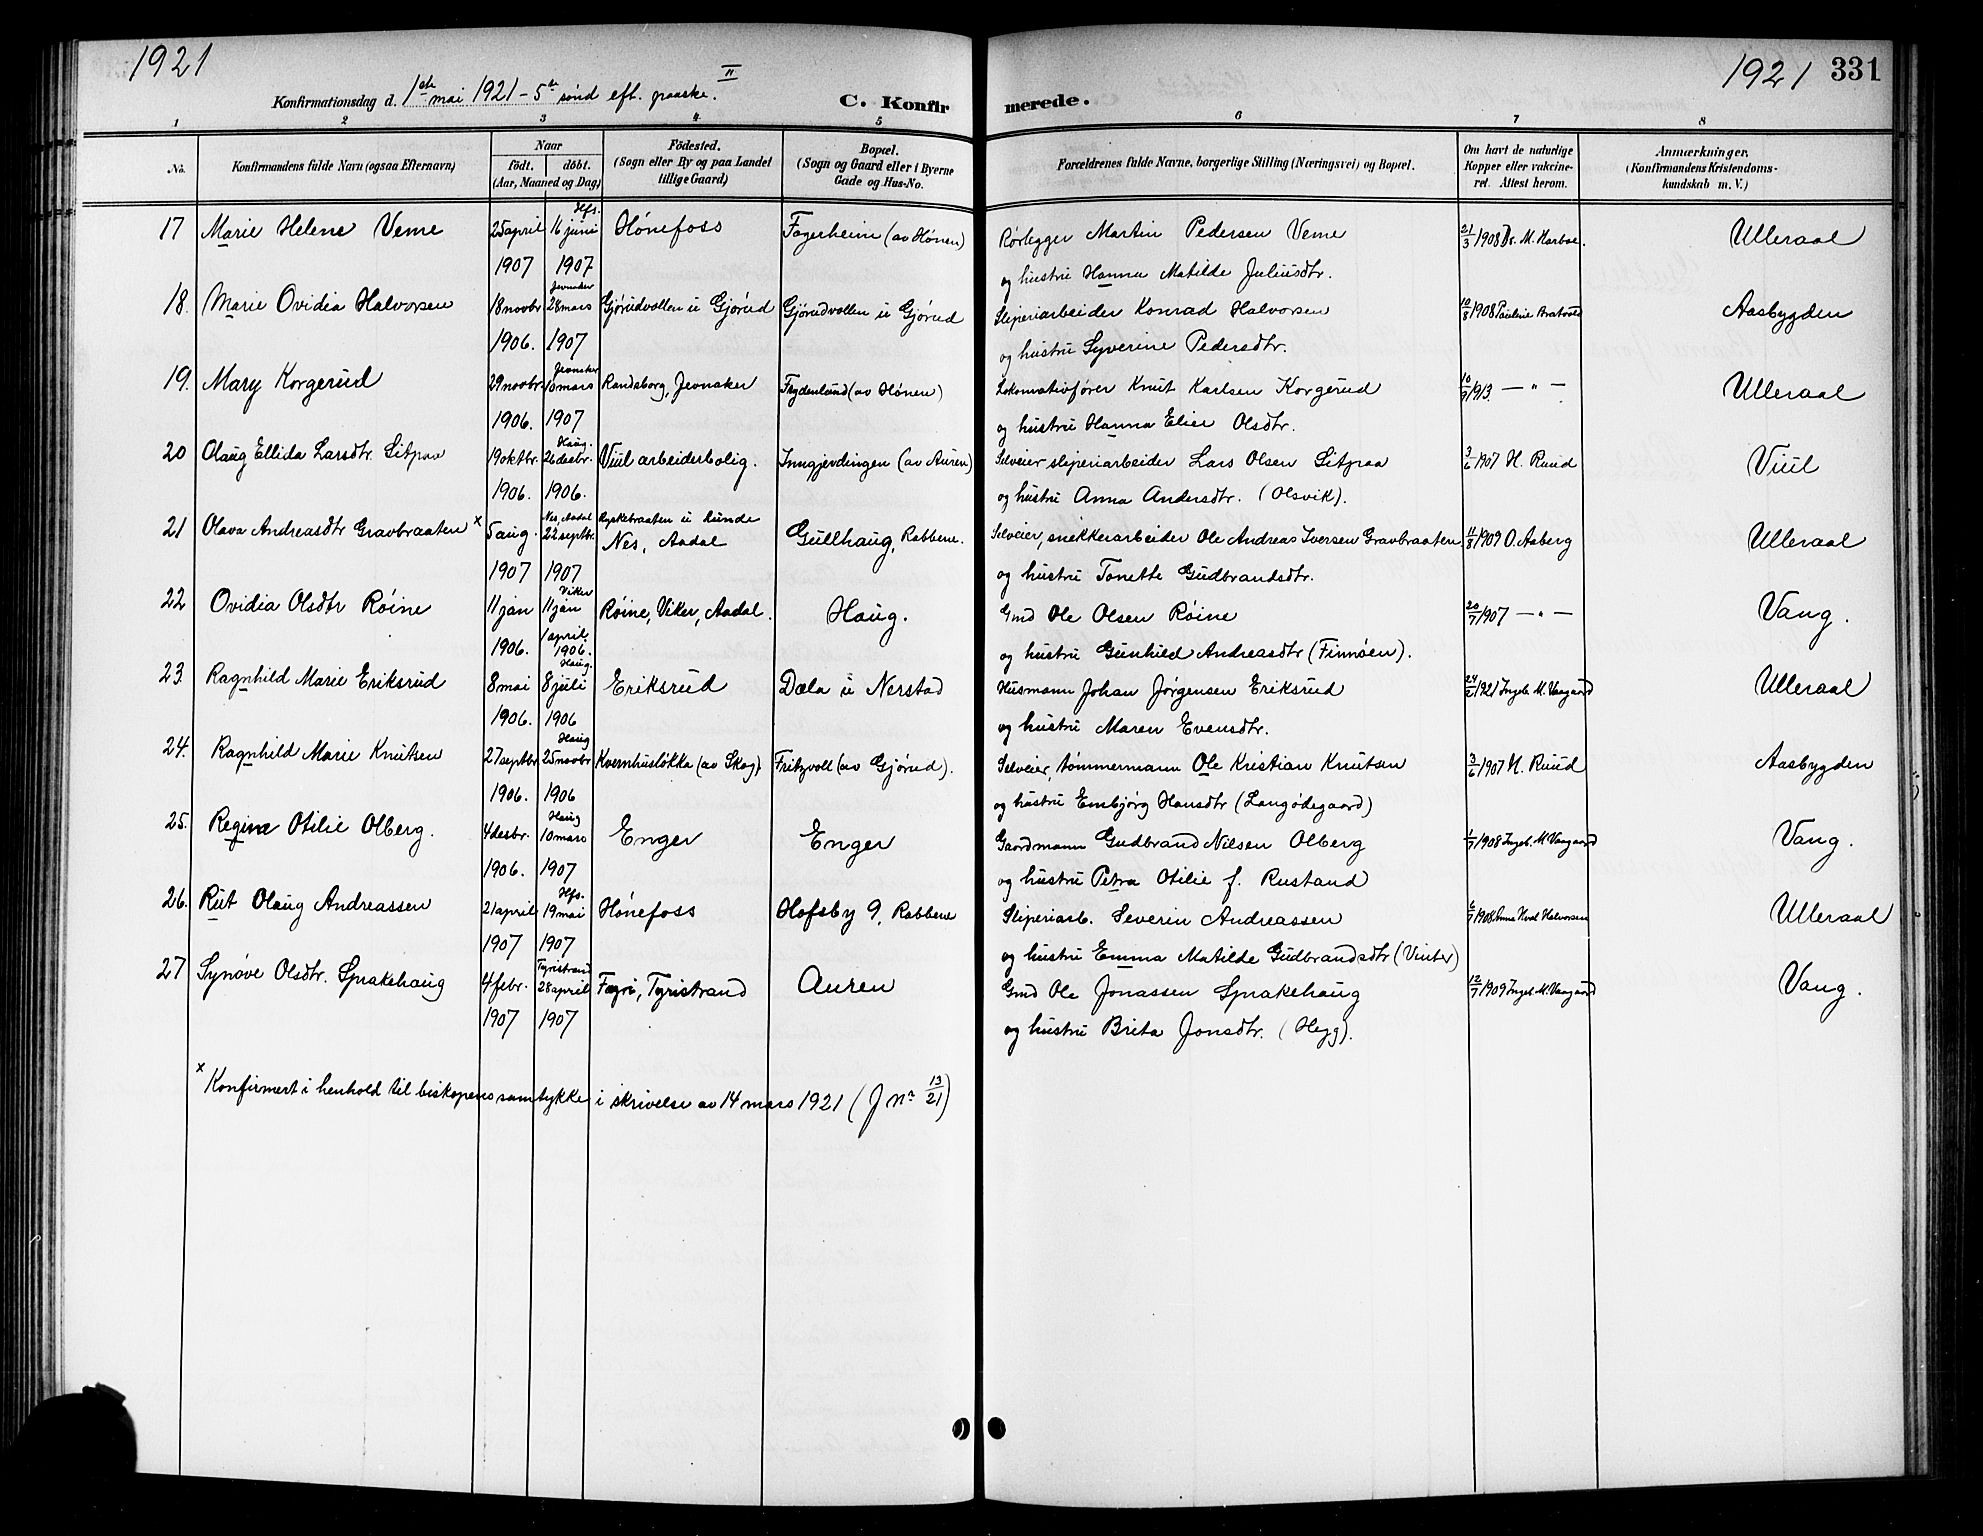 1921
Konfirmationsdag d. 1ste mai 1921 - 5te sönd eft. paaske. II
C. Konfirmerede.
1921 331
1 2 3 4 5 6 7 8
No. Konfirmandens fulde Navn (ogsaa Efternavn) Naar födt. döbt. (Aar, Maaned og Dag) Födested. (Sogn eller By og paa Landet tillige Gaard) Bopæl. (Sogn og Gaard eller i Byerne Gade og Hus-No. Forældrenes fulde Navne, borgerlige Stilling (Næringsvei) og Bopæl. Om havt de naturlige Kopper eller vakcineret. Attest herom. Anmærkninger. (Konfirmandens Kristendomskundskab m. V.)
17 Marie Helene Veme 25 april 1907 Hfs. 16 juni 1907 Hönefoss Fagerheim (av Hönen) Rörlegger Martin Pedersen Veme 21/3 1908 Dr. M. Harboe. Ulleraal
og hustru Hanna Matilde Juliusdtr.
18. Marie Ovidia Halvorsen 18 novbr 1906. Jevnaker 28 mars 1907 Gjörudvollen u Gjörud Gjörudvollen u Gjörud Sliperiarbeider Konrad Halvorsen 10/8 1908 Pauline Aasbygden
og hustru Syverine Pedersdtr.
19. Mary Korgerud 29 novbr. 1906. Jevnaker 10 mars 1907 Randsborg, Jevnaker Frydenlund (av Hönen) Lokomotivförer Knut Karlsen Korgerud 10/9 1913. — " — Ulleraal
og hustru Hanna Elise Olsdtr.
20 Olaug Ellida Larsdtr. Sitpaa 19 oktbr. 1906. Haug. 26 desbr. 1906. Viul arbeiderbolig. Inngjerdingen (av Auren) Selveier sliperiarbeider Lars Olsen Sitpaa 3/6 1907 H. Ruud Viul
og hustru Anna Andersdtr. (Olsvik).
21 Olava Andreasdtr Gravbraaten x 5 aug. 1907 Nes, Aadal 22 septbr. 1907 Ryskebraaten u Lunde Nes, Aadal Gullhaug, Rabbene. Selveier, snekkerarbeider Ole Andreas Iversen Gravbraaten 11/8 1909 O. Aaberg Ulleraal
og hustru Tonette Gudbrandsdtr.
22 Ovidia Olsdtr Röine 11 jan 1906. Viker 11 jan 1 april. 1906. Röine, Viker, Aadal. Haug. Gmd Ole Olsen Röine 20/7 1907 — " — Vang.
og hustru Gunhild Andreasdtr (Finnöen).
23 Ragnhild Marie Eriksrud 8 mai 1906. Haug. 8 juli 1906 Eriksrud Dæla u Nerstad Husmann Johan Jörgensen Eriksrud 24/2 1921 Ingeb. M. Vaagaard Ulleraal
og hustru Maren Evensdtr.
24. Ragnhild Marie Knutsen 27 septbr 1906. Haug 25 novbr 1906 Kvernhuslökka (av Skag) Fritzvoll (av Gjörud). Selveier, tömmermann Ole Kristian Knutsen 3/6 1907 H. Ruud Aasbygden
og hustru Embjörg Hansdtr (Langödegaard)
25. Regine Otilie Olberg. 4 desbr. 1906. Haug 10 mars 1907 Enger Enger Gaardmann Gudbrand Nilsen Olberg 1/7 1908 Ingeb. M. Vaagaard Vang.
og hustru Petra Otilie f. Rustand
26. Rut Olaug Andreassen 21 april 1907 Hfs. 19 mai 1907 Hönefoss Hofsby 9, Rabbene Sliperiarb. Severin Andreassen 6/7 1908 Anna Hval Halvorsen Ulleraal
og hustru Emma Matilde Gudbrandsdtr (Vinter)
27 Synöve Olsdtr. Sprakehaug 4 febr. 1907 Tyristrand 28 april 1907 Fægri, Tyristrand Auren Gmd Ole Jonassen Sprakehaug 12/7 1909 Ingeb. M. Vaagaard Vang.
og hustru Brita Jonsdtr. (Hegg).
x Konfirmert i henhold til biskopens samtykke i skrivelse av 14 mars 1921 (J nr. 13/21)